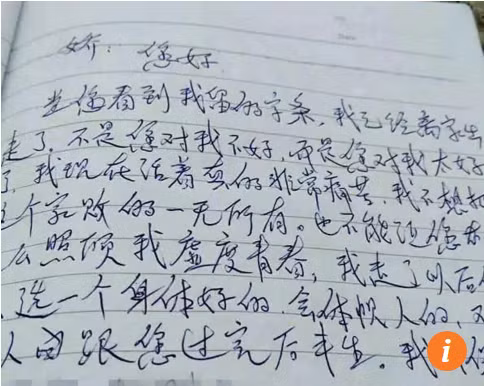 娇：您好
当您看到我留的字条，我已经离家出
走了。不是您对我不好，而是您对我太好
了，我现在活着真的非常痛苦，我不想把
这个家败的一无所有。也不能让您来
么照顾我虚度青春，我走了以后
选一个身体好的，会体
人的，
人由跟您过完后半生。我